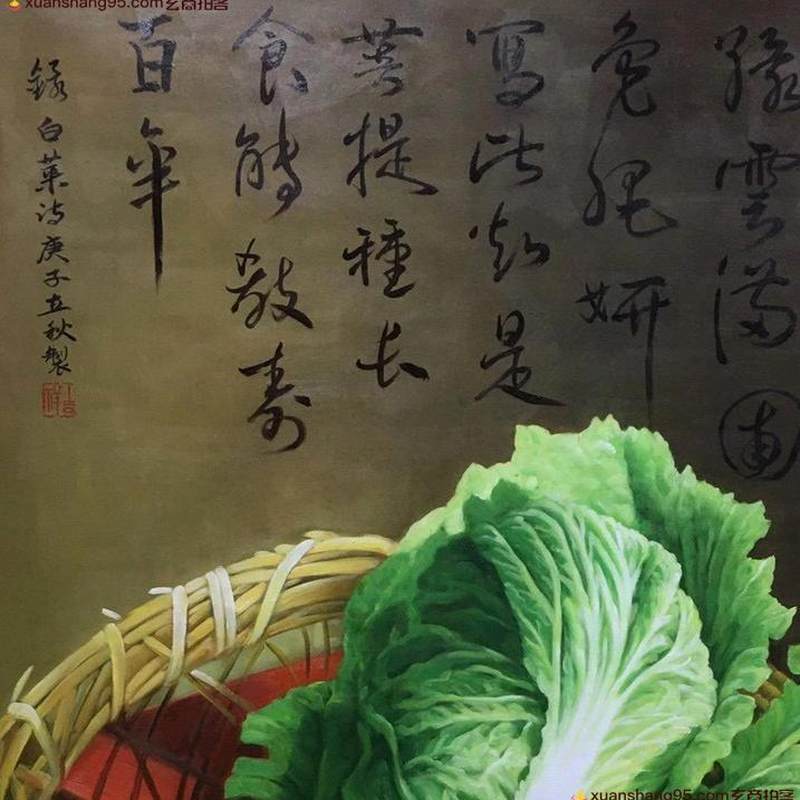 xuanshang95.com玄商拍客
綠雲滿圃
肥妍
寫此知是
菩提種長
食能教壽
百年
錄白菜詩庚子立秋製
xuanshang95.com玄商拍客